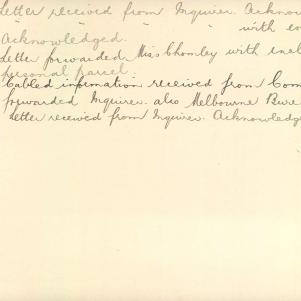 Letter received from Inquirer. Acknow
with en
Acknowledged.
Letter forwarded Miss Chomley with encl
personal parcel.
Cabled information received from Com
forwarded Inquirer. also Melbourne Bure
Letter received from Inquirer. Acknowledge